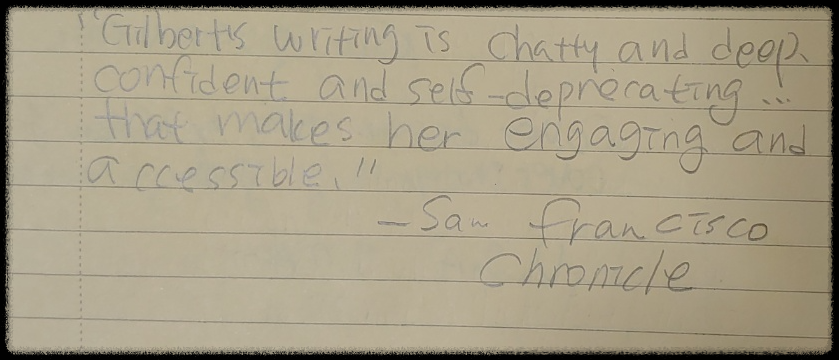 "Gilbert's writing is chatty and deep,
confident and self-deprecating...
that makes her engaging and
accessible."
—San Francisco
Chronicle